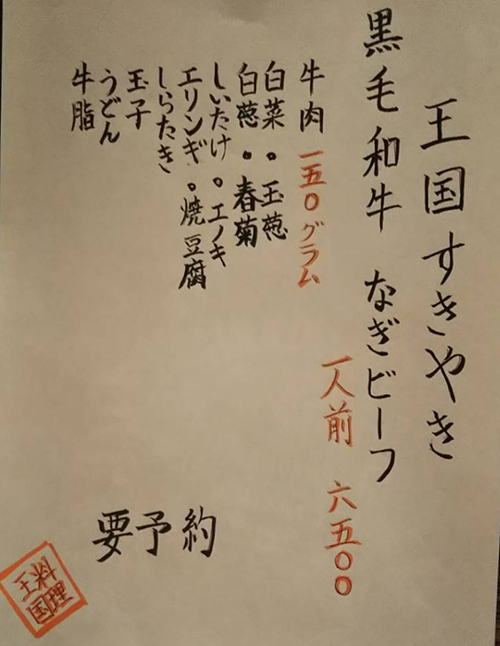 王国すきやき
黒毛和牛 なぎビーフ
一人前 六五〇〇
牛肉 一五〇グラム
白菜。玉葱
白葱。春菊
しいたけ。エノキ
エリンギ。焼豆腐
しらたき
玉子
うどん
牛脂
要予約
料理
王国